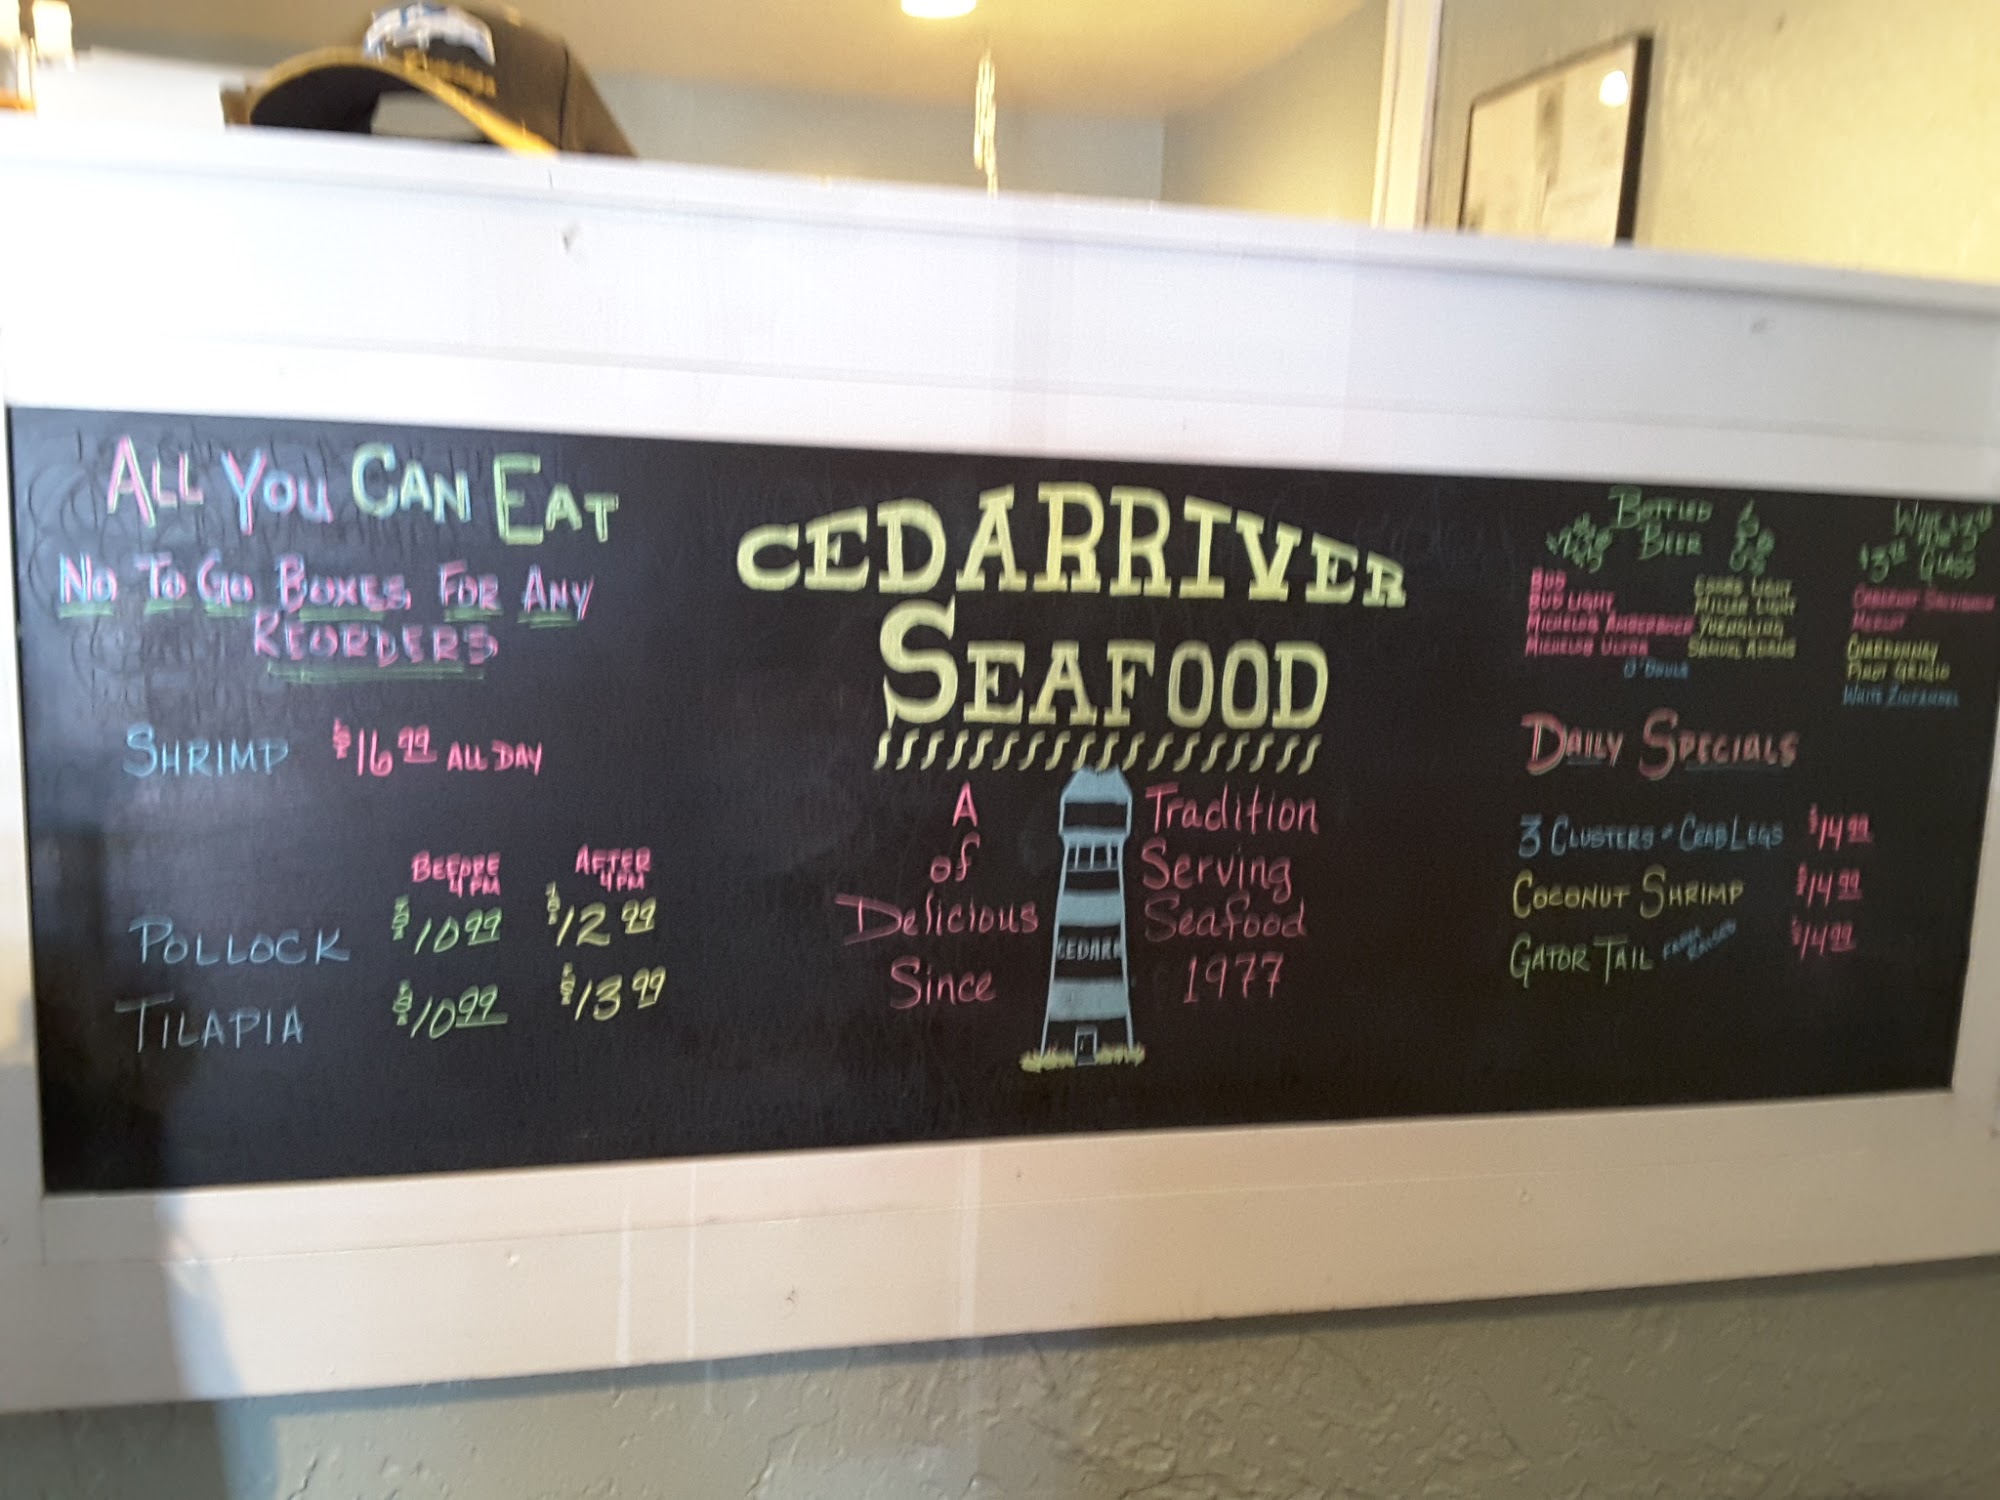 ALL YOU CAN EAT
NO TO GO BOXES FOR ANY
REORDERS
SHRIMP $16.99 ALL DAY
BEFORE 4PM AFTER 4PM
POLLOCK $10.99 $12.99
TILAPIA $10.99 $13.99
CEDAR RIVER
SEAFOOD
A Tradition
of Serving
Delicious Seafood
Since 1977
CEDARR
BOTTLED
BEER
BUD
BUD LIGHT
MICHELOB AMBERBOCK
MICHELOB ULTRA
COORS LIGHT
MILLER LIGHT
YUENGLING
SAMUEL ADAMS
O'DOULS
WINE
GLASS
CABERNET SAUVIGNON
MERLOT
CHARDONNAY
PINOT GRIGIO
WHITE ZINFANDEL
DAILY SPECIALS
3 CLUSTERS CRAB LEGS $14.99
COCONUT SHRIMP $14.99
GATOR TAIL FARM RAISED $14.99